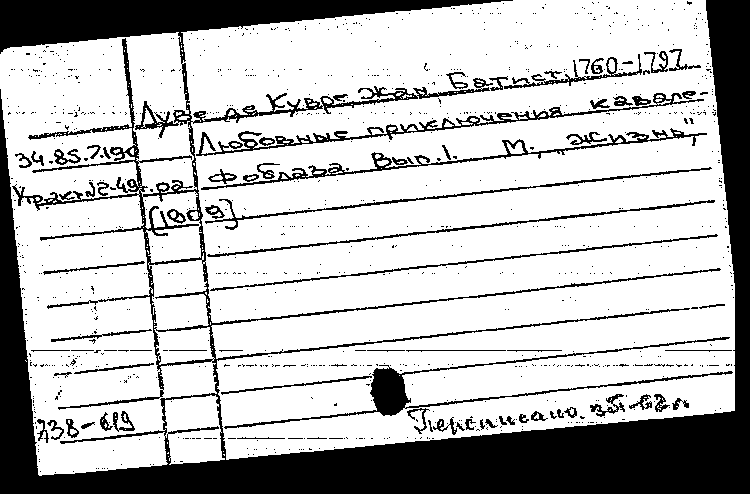 Луве де Кувре, Жан Батист, 1760-1797
34.85.7.190 Любовные приключения кавале-
ра Фоблаза. Вып. 1. М., "Жизнь",
[1909].
238-619
Переписано